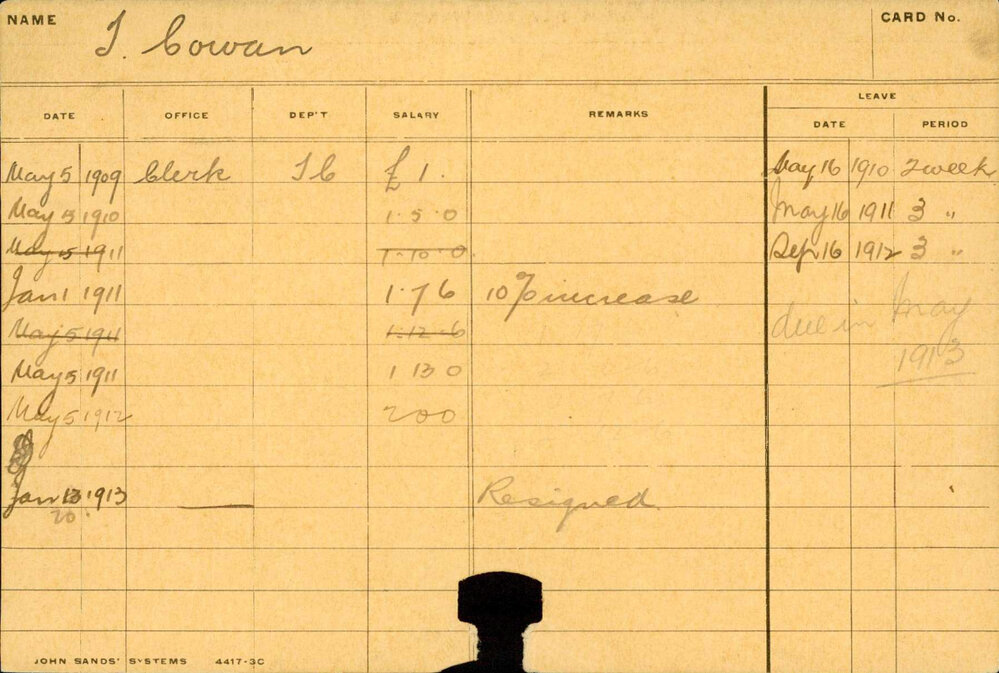 NAME T. Cowan CARD No.
LEAVE
DATE OFFICE DEP'T SALARY REMARKS DATE PERIOD
May 5 1909 Clerk T C £ 1. May 16 1910 2 week
May 5 1910 1. 5. 0 May 16 1911 3 "
May 5 1911 1. 10. 0. Sep 16 1912 3 "
Jan 1 1911 1. 7 6 10% increase due in May
May 5 1911 1. 12. 6 1913
May 5 1911 1 13 0
May 5 1912 2 0 0
Jan 13 1913 — Resigned.
20.
JOHN SANDS' SYSTEMS 4417-3C